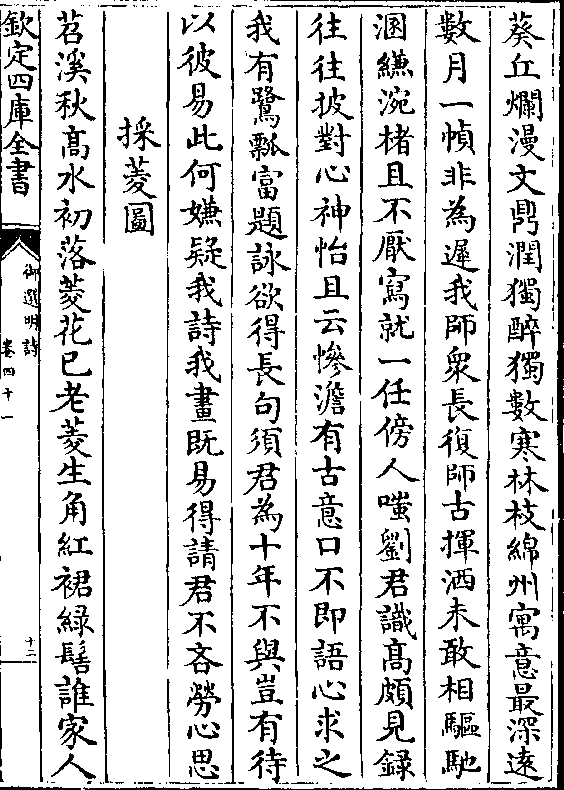 葵丘爛漫文鼎潤獨醉獨數寒林枝綿州寓意最深遠
數月一幀非為遲我師衆長復師古揮洒未敢相驅馳
溷縑涴楮且不厭寫就一任傍人嗤劉君識髙頗見録
往往披對心神怡且云慘澹有古意口不即語心求之
我有鷺瓢富題詠欲得長句須君為十年不與豈有待
以彼易此何嫌疑我詩我畫既易得請君不吝勞心思
採菱圖
苕溪秋髙水初落菱花已老菱生角紅裙緑髩誰家人
欽定四庫全書
御選明詩
卷四十一
十二